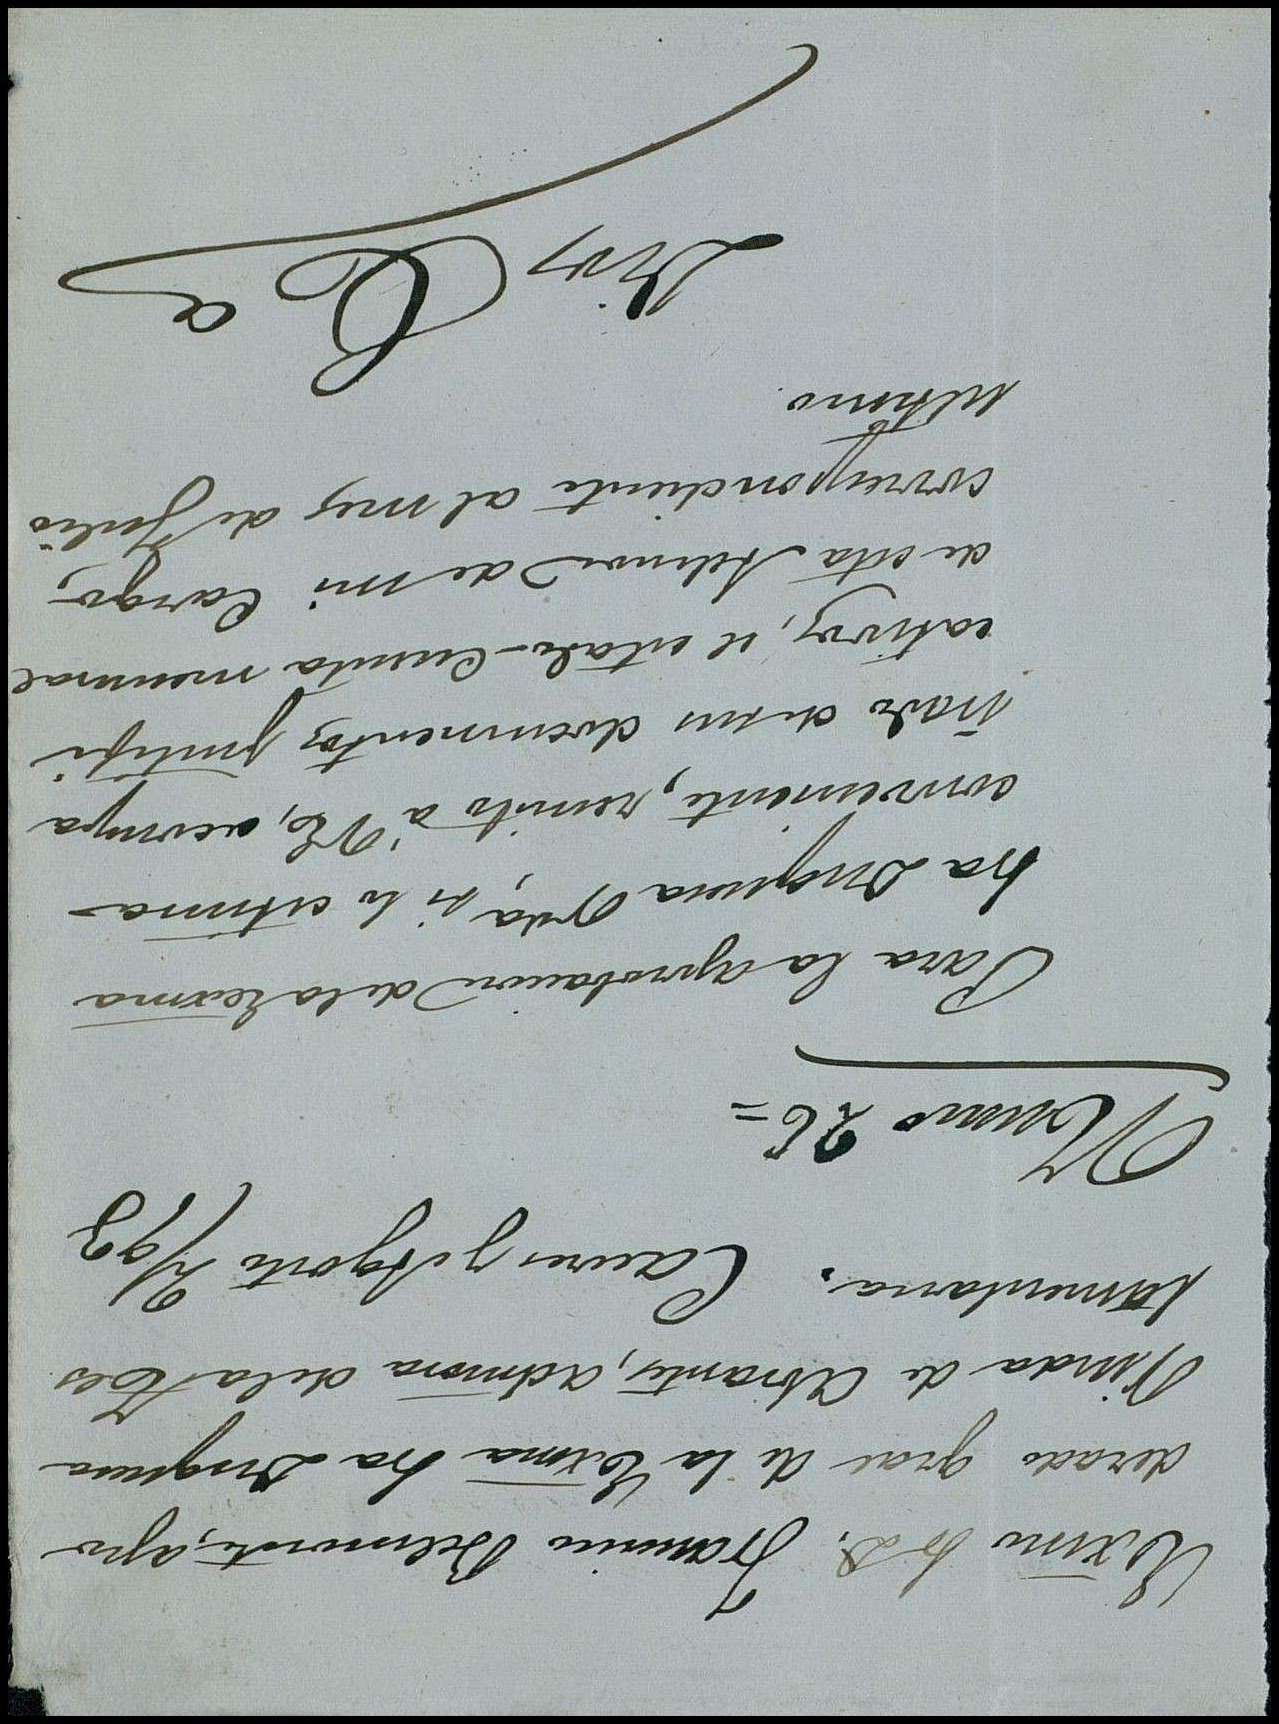 Exmo Sr D. Francisco Belmonte, apo
derado gral de la Exma Sra Duquesa
Viuda de Abrantes, admora de la Tes
tamentaria. Caceres y Agosto 2/93
Númo 26=
Para la aprobacion de la Excma
Sra Duquesa Vda, si lo estima
conveniente, remito á V.E., acompa
ñado de sus documentos justifi
cativos, el estado-Cuenta mensual
de esta Admon de mi Cargo,
correspondiente al mes de Julio
último.
Dios